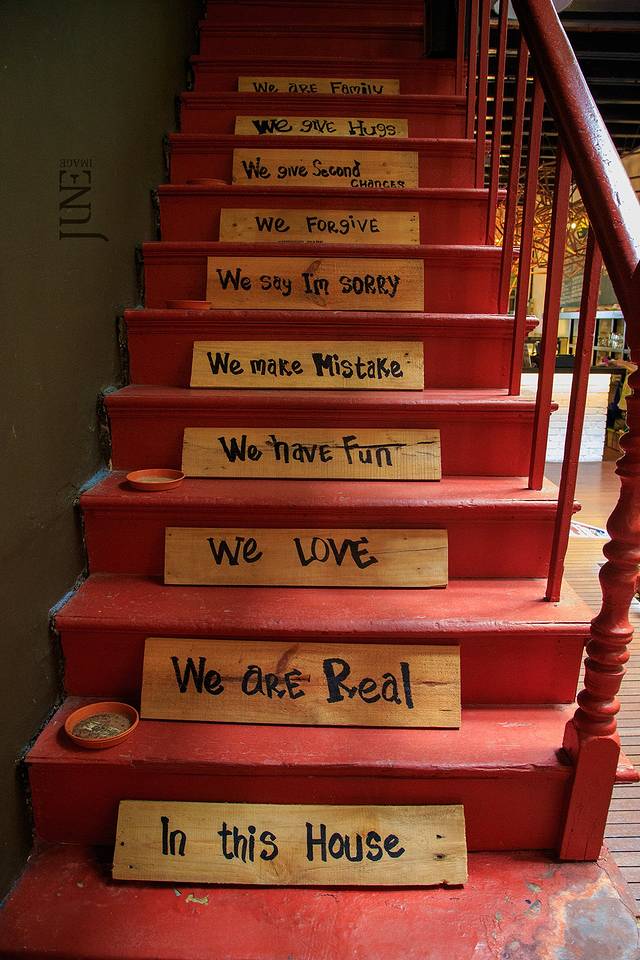 We are Family
We give Hugs
We give Second
Chances
We Forgive
We say I'm sorry
We make Mistake
We have Fun
We Love
We are Real
In this House
JUNE
IMAGE